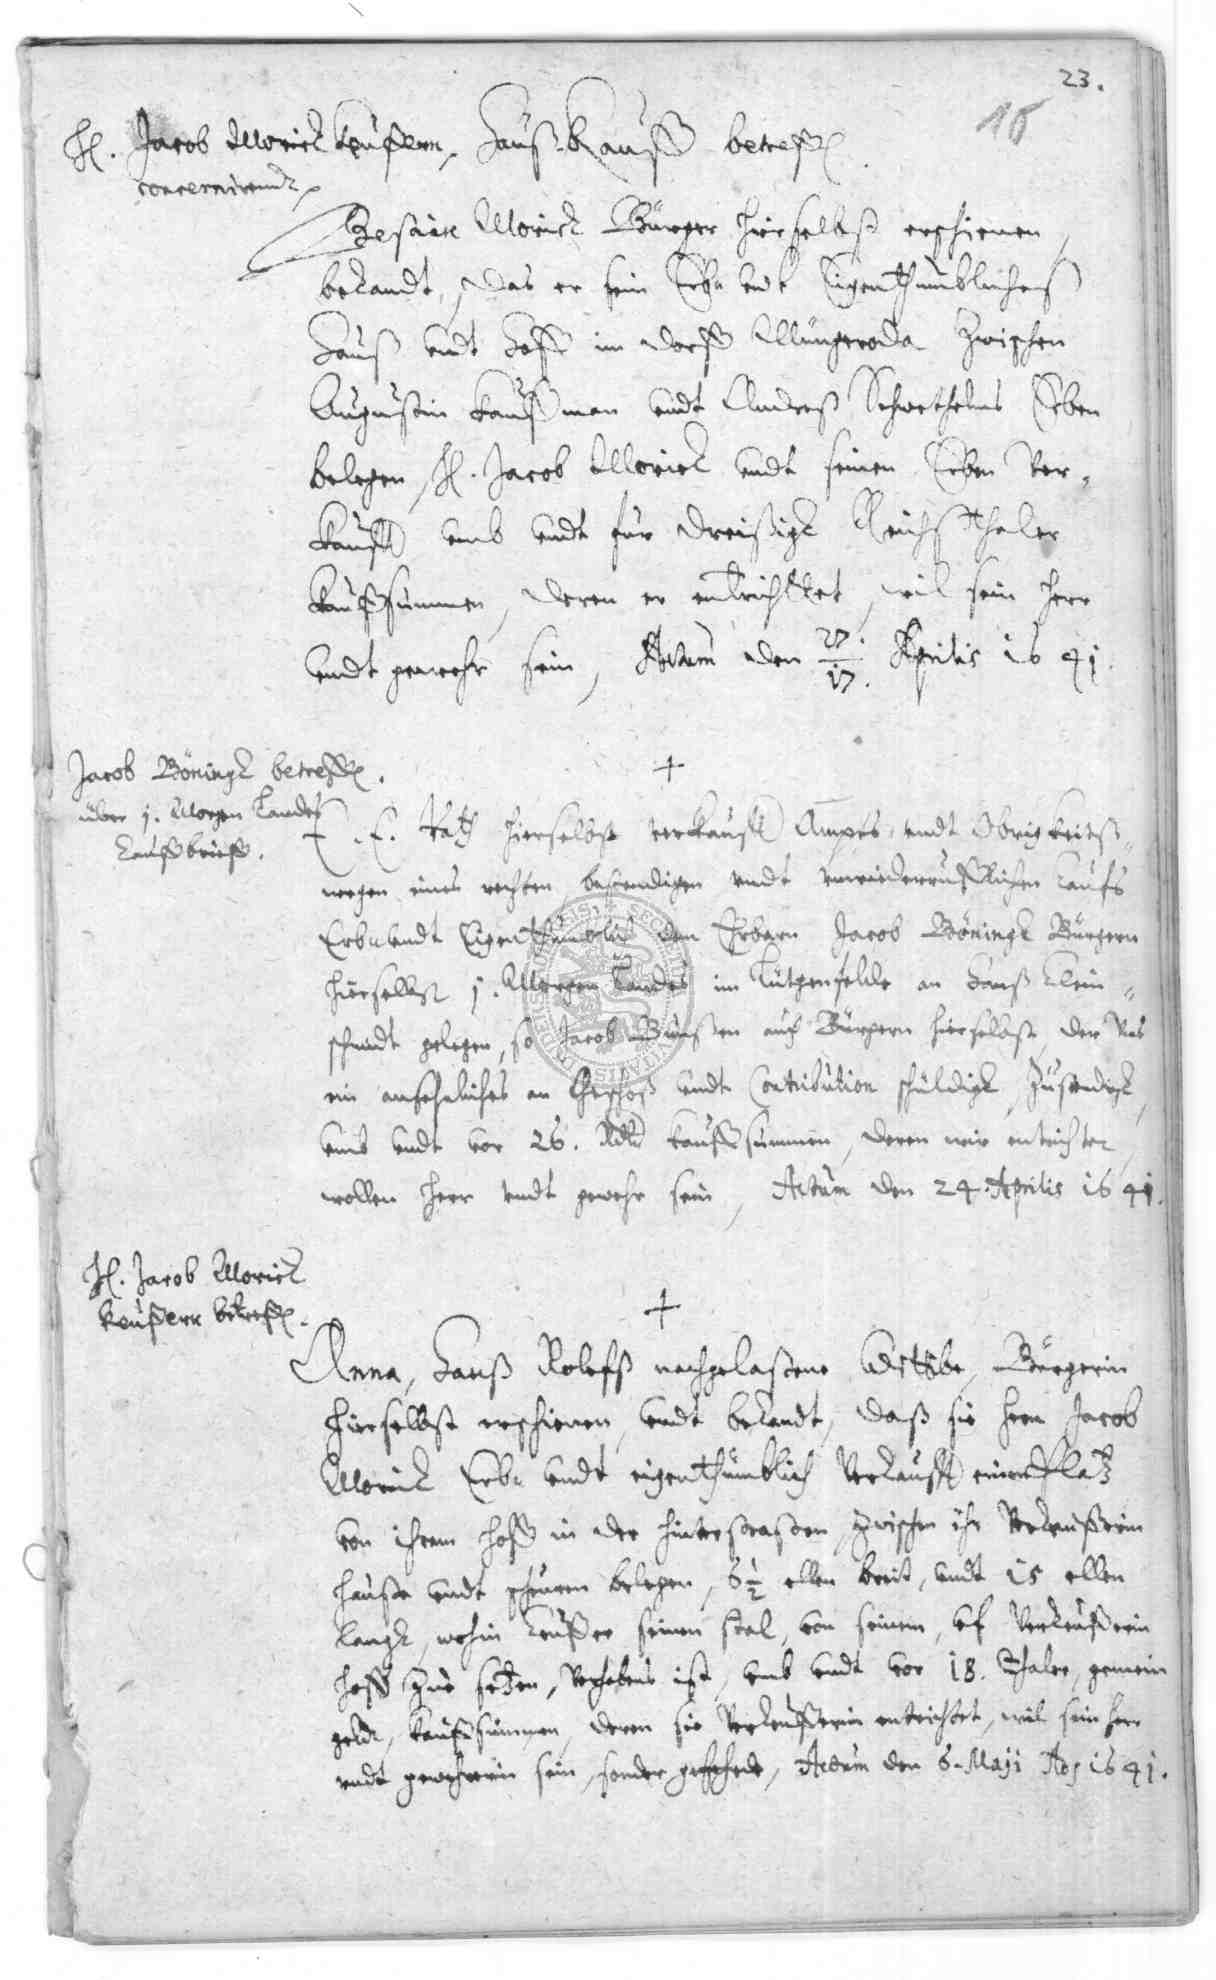 23.
18
H. Jacob Morick keuffern, Hauß Kauff betreff.
concernirendt
Zesaire Morick Bürger hierselbst erschienen,
bekandt, das er sein Erb undt Eigenthumbliches
Hauß undt Hoff im dorff Müngeroda zwischen
Augustin Kauffman undt Andreß Schwethelms Erben
belegen, H. Jacob Morick undt seinen Erben ver-
kaufft umb undt für dreißigk Reichsthaler
kauffsummen, deren er entrichttet, wil sein herr
undt gewehr sein, Actum den 27./17. Aprilis 1641.
Jacob Böningk betreff.
über 1. Morgen Landes
Kauffbrieff.
+
E. E. Rath hierselbst verkaufft Ampts undt Obrigkeits
wegen eines rechten bestendigen undt unwiederrufflichen Kaufs
Erb undt Eigenthumblich dem Erbarn Jacob Böningk Bürgern
hierselbst 1. Morgen Landes im Lütgenfelde an Hanß Klein-
schmidt gelegen, so Jacob Bunßen auch Bürgern hierselbst, der uns
ein ansehnliches an Geschoß undt Contribution schüldigk, zustendigk,
umb undt vor 26. Rthlr kauffsummen, deren wir entrichtet,
wollen herr undt gewehr sein, Actum den 24. Aprilis 1641.
H. Jacob Morick
keuffern betreff.
+
Anna, Hanß Rolefs nachgelassene Wittibe, Bürgerin
hierselbst erschienen, undt bekandt, daß sie hern Jacob
Morick Erb undt eigenthumblich verkaufft einen Platz
von ihrem hoff in der hinterstrassen, zwischen ihr Verkeufferin
hause undt scheuren belegen, 6 1/2 ellen breit, undt 15 ellen
langk, wohin keuffer seinen stal, von seinem, uf Verkeufferin
hoff zue setzen, Vorhabens ist, umb undt vor 18. Thaler, gemein
geldt, kauffsummen, deren sie Verkeufferin entrichtet, wil sein herr
undt gewehrin sein, sonder gefehrde, Actum den 6. Maji Ao 1641.